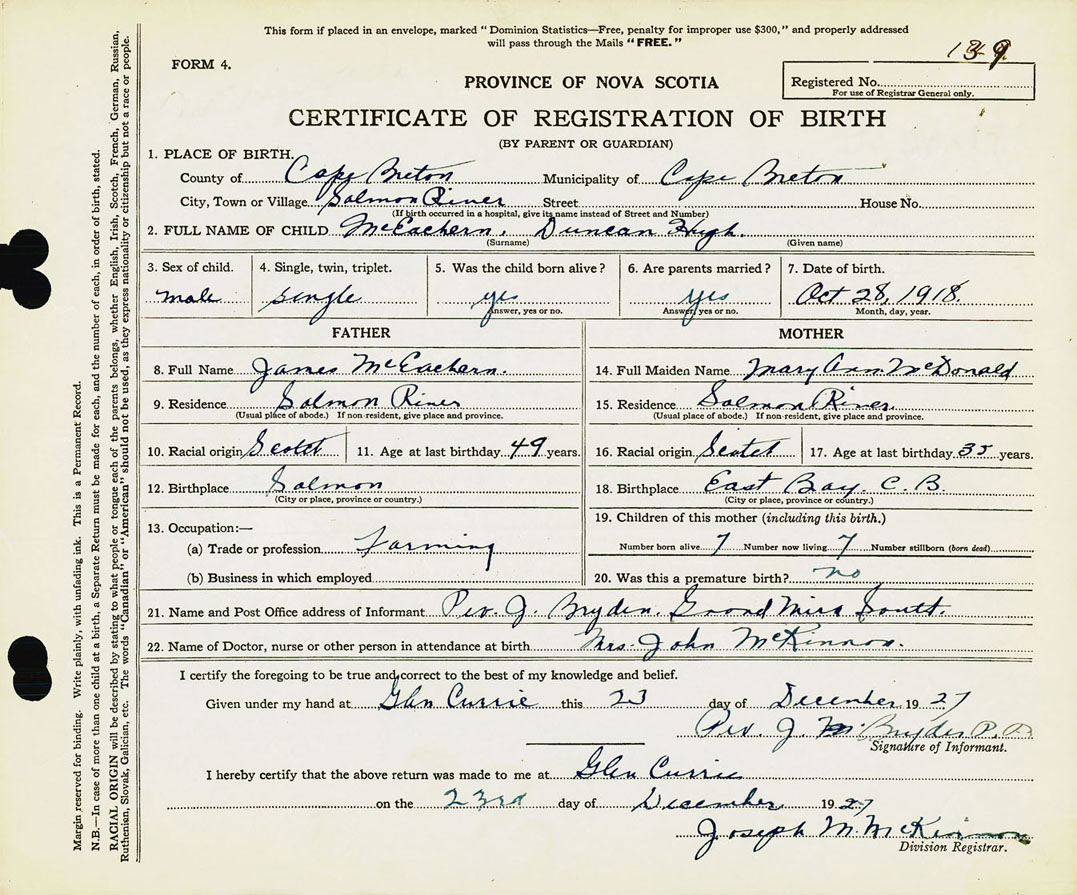 This form if placed in an envelope, marked "Dominion Statistics—Free, penalty for improper use $300," and properly addressed
will pass through the Mails "FREE."
139
FORM 4.
PROVINCE OF NOVA SCOTIA
Registered No.
For use of Registrar General only.
CERTIFICATE OF REGISTRATION OF BIRTH
(BY PARENT OR GUARDIAN)
1. PLACE OF BIRTH.
County of Cape Breton Municipality of Cape Breton
City, Town or Village Salmon River Street House No.
(If birth occurred in a hospital, give its name instead of Street and Number)
2. FULL NAME OF CHILD McEachern, Duncan Hugh.
(Surname) (Given name)
3. Sex of child. 4. Single, twin, triplet. 5. Was the child born alive? 6. Are parents married? 7. Date of birth.
male single yes yes Oct 28, 1918.
Answer, yes or no. Answer, yes or no. Month, day, year.
FATHER MOTHER
8. Full Name James McEachern. 14. Full Maiden Name Mary Ann McDonald
9. Residence Salmon River 15. Residence Salmon River
(Usual place of abode.) If non resident, give place and province. (Usual place of abode.) If non-resident, give place and province.
10. Racial origin Scotch 11. Age at last birthday 49 years. 16. Racial origin Scotch 17. Age at last birthday 35 years.
12. Birthplace Salmon 18. Birthplace East Bay. C. B.
(City or place, province or country.) (City or place, province or country.)
13. Occupation:— 19. Children of this mother (including this birth.)
(a) Trade or profession Farming Number born alive 7 Number now living 7 Number stillborn (born dead)
(b) Business in which employed 20. Was this a premature birth? no
21. Name and Post Office address of Informant Rev. J. Bryden, Grand Mira South.
22. Name of Doctor, nurse or other person in attendance at birth Mrs. John McKinnon.
I certify the foregoing to be true and correct to the best of my knowledge and belief.
Given under my hand at Glen Currie this 23 day of December 1927
Rev. J. Bryden P.P.
Signature of Informant.
I hereby certify that the above return was made to me at Glen Currie
on the 23rd day of December 1927
Joseph M. McKinnon
Division Registrar.
Margin reserved for binding. Write plainly, with unfading ink. This is a Permanent Record.
N.B.—In case of more than one child at a birth, a Separate Return must be made for each, and the number of each, in order of birth, stated.
RACIAL ORIGIN will be described by stating to what people or tongue each of the parents belongs, whether English, Irish, Scotch, French, German, Russian,
Ruthenian, Slovak, Galician, etc. The words "Canadian" or "American" should not be used, as they express nationality or citizenship but not a race or people.